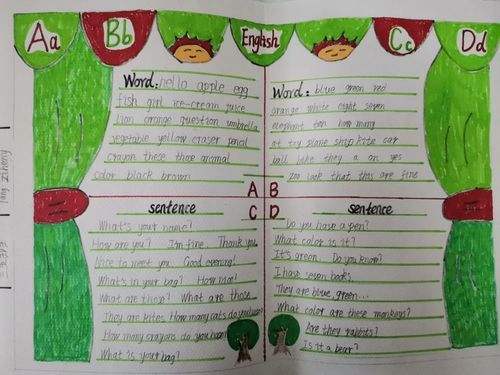 Aa Bb English Cc Dd
Word: hello apple egg
fish girl ice-cream juice
lion orange question umbrella
vegetable yellow eraser pencil
crayon these those animal
color black brown
A
Word: blue green red
orange white eight seven
elephant ten how many
at toy plane ship kite car
ball like they a an yes
zoo look that this are fine
B
C
sentence
What's your name?
How are you? I'm fine. Thank you.
Nice to meet you. Good evening!
What's in your bag?
What are these? What are those
They are kites How many cats do you have?
How many crayons do you have?
What is your bag?
D
sentence
Do you have a pen?
What color is it?
It's green. Do you know?
I have seven books.
They are blue, green...
What color are these monkeys?
Are they rabbits?
Is it a bear?